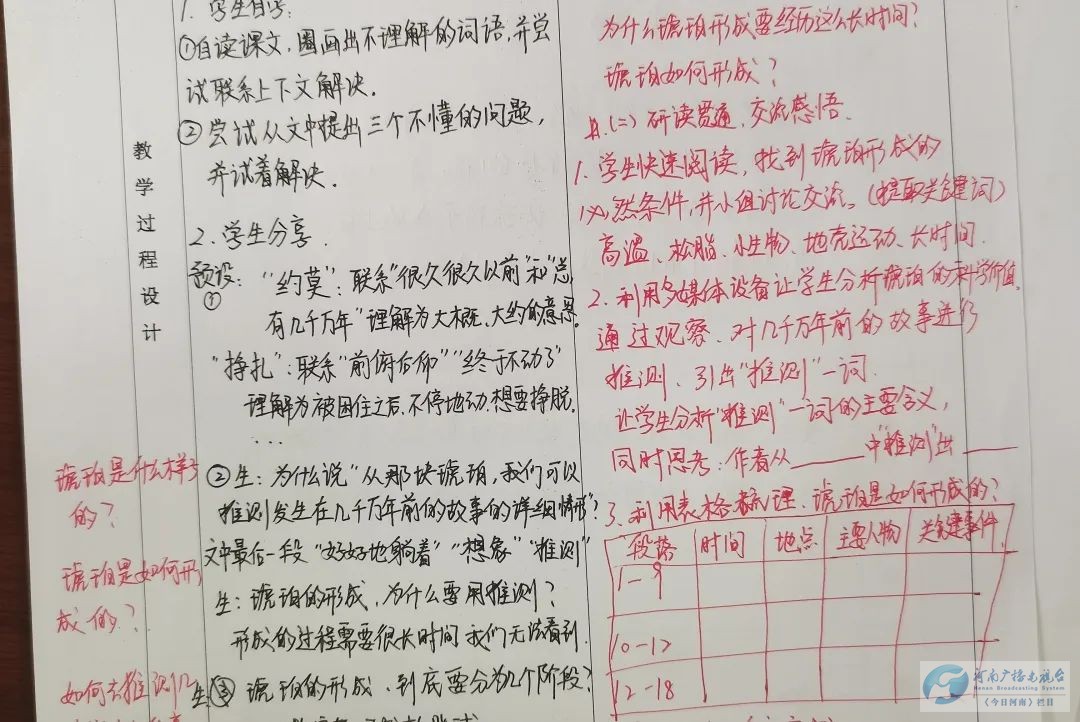 教学过程设计
1. 学生自学:
①自读课文,圈画出不理解的词语,并尝
试联系上下文解决.
②尝试从文中提出三个不懂的问题,
并试着解决.
2. 学生分享.
预设:
① "约莫": 联系"很久很久以前"和"总
有几千万年"理解为大概、大约的意思.
"挣扎": 联系"前俯后仰" "终于不动了"
理解为被困住之后,不停地动,想要挣脱.
...
②生: 为什么说"从那块琥珀,我们可以
推测发生在几千万年前的故事的详细情形"?
文中最后一段 "好好地躺着" "想象" "推测"
生: 琥珀的形成,为什么要用推测?
形成的过程需要很长时间 我们无法看到.
生③ 琥珀的形成,到底要分为几个阶段?
琥珀是什么样子
的?
琥珀是如何形
成的?
如何去推测
为什么琥珀形成要经历这么长时间?
琥珀如何形成?
(二) 研读贯通、交流感悟.
1. 学生快速阅读,找到琥珀形成的
必然条件,并小组讨论交流。(提取关键词)
高温、松脂、小生物、地壳运动、长时间.
2. 利用多媒体设备让学生分析琥珀的科学价值.
通过观察、对几千万年前的故事进行
推测、引出"推测"一词.
让学生分析"推测"一词的主要含义,
同时思考: 作者从______中"推测"出______
3. 利用表格梳理、琥珀是如何形成的?
段落 时间 地点 主要人物 关键事件
1-9
10-12
12-18
河南广播电视台
Henan Broadcasting System
《今日河南》栏目